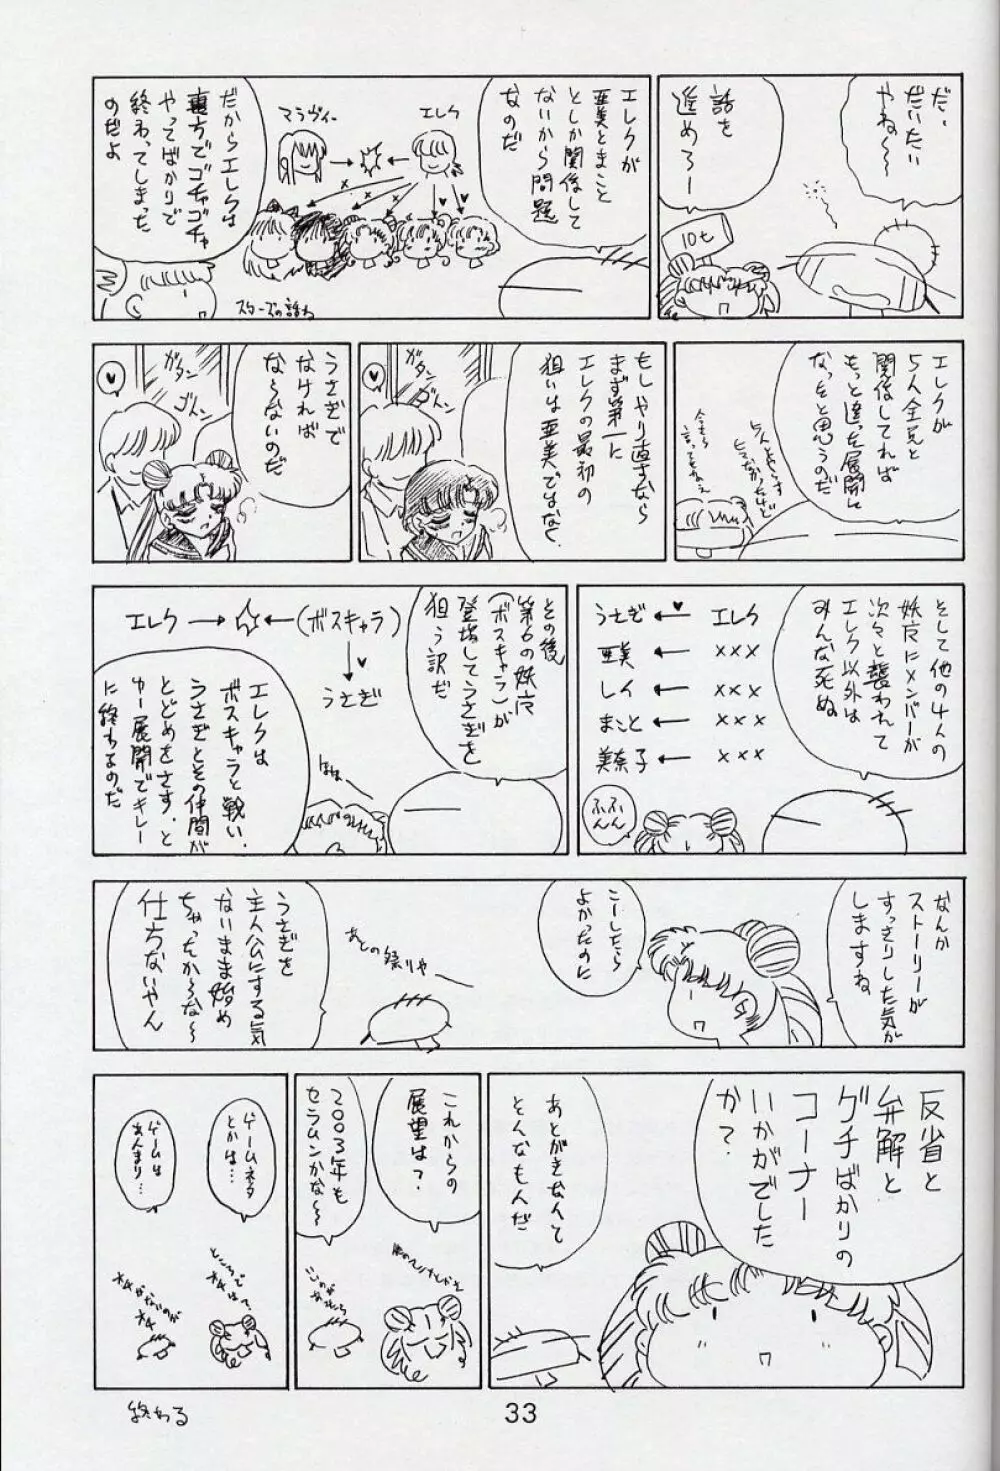 だ、
だいたい
やね〜〜
話を
進めろー
10t
エレクが
亜美とまこと
としか関係して
ないから問題
なのだ
エレク
マラヴィー
スターズの話ね
だからエレクは
裏方でゴチャゴチャ
やってばかりで
終わってしまった
のだよ
エレクが
5人全員と
関係してれば
もっと違った展開に
なったと思うのだ
今さら
言ってもねえ
もしやり直すなら
まず第一に
エレクの最初の
狙いは亜美ではなく、
ガタン
ゴトン
うさぎで
なければ
な〜らないのだ
ガタン
ゴトン
そして他の4人の
妖魔にメンバーが
次々と襲われて
エレク以外は
みんな死ぬ
エレク
うさぎ
×××
亜美
×××
レイ
×××
まこと
×××
美奈子
ふん
ふん
その後
第6の妖魔
(ボスキャラ)が
登場してうさぎを
狙う訳だ
エレク
(ボスキャラ)
うさぎ
ほほー
エレクは
ボスキャラと戦い、
うさぎとその仲間が
とどめをさす、と
ゆー展開でキレー
に終わるのだ
なんか
ストーリーが
すっきりした気が
しますね
こーしたら
よかったのに
あとの祭りや
うさぎを
主人公にする気
ないまま始め
ちゃったからな〜
仕方ないやん
反省と
弁解と
グチばかりの
コーナー
いかがでした
か？
あとがきなんて
そんなもんだ
これからの
展望は？
2003年も
セラムンかな〜〜
ゲームネタ
とかは…
ところで
オチは？
ゲームは
あんまり…
オチがないのが
オチ
終わる
33